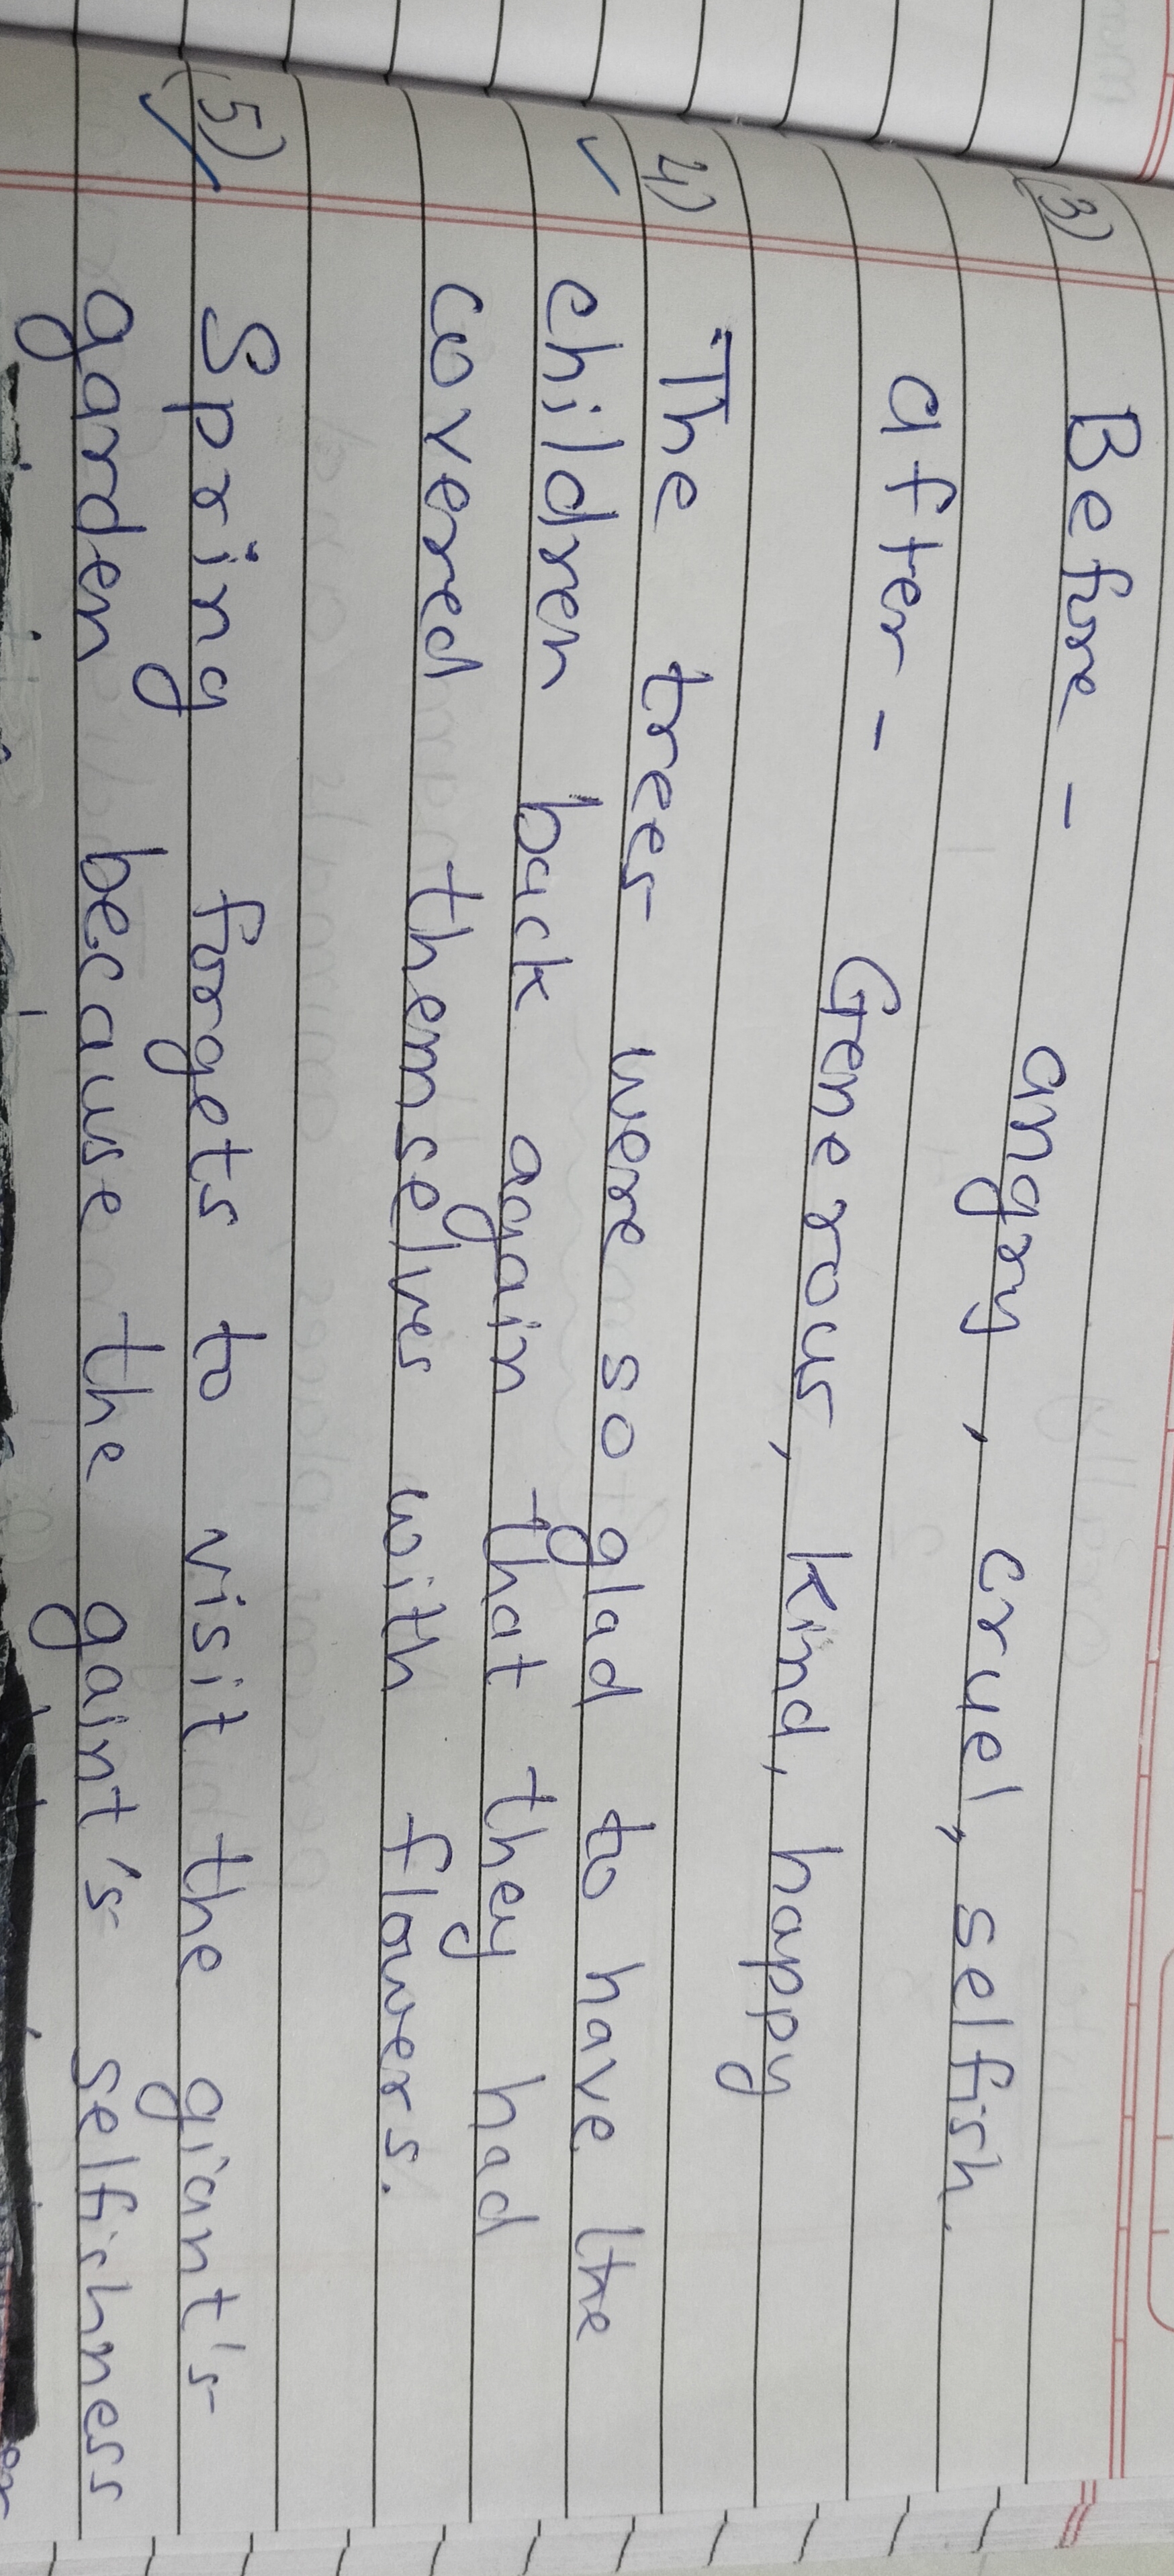 (3) Before - angry, cruel, selfish.
after - Generous, kind, happy
4) The trees were so glad to have the
children back again that they had
covered themselves with flowers.
(5) Spring forgets to visit the giant's
garden because the gaint's selfishness